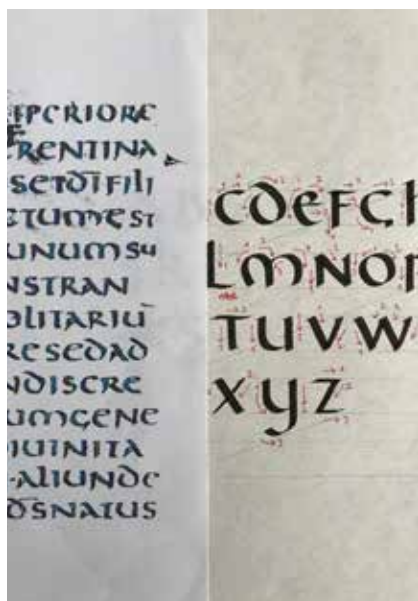 PERIORE
RENTINA
SETDIFILI
TUMEST
UNUMSU
NSTRAN
OLITARIU
RESEDAD
NDISCRE
UMGENE
IUINITA
ALIUNDE
DSNATUS
CDEFG
LMNO
TUVW
XYZ